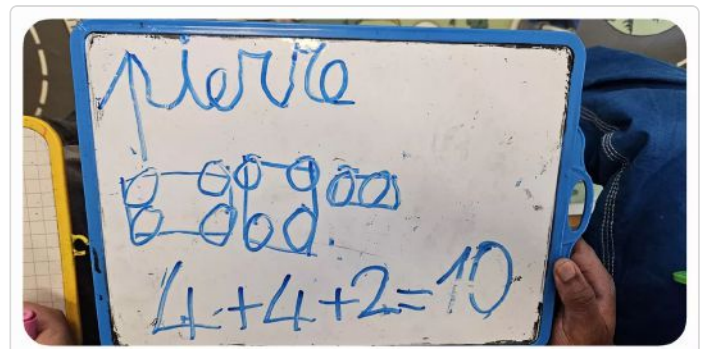 pierre
4+4+2=10